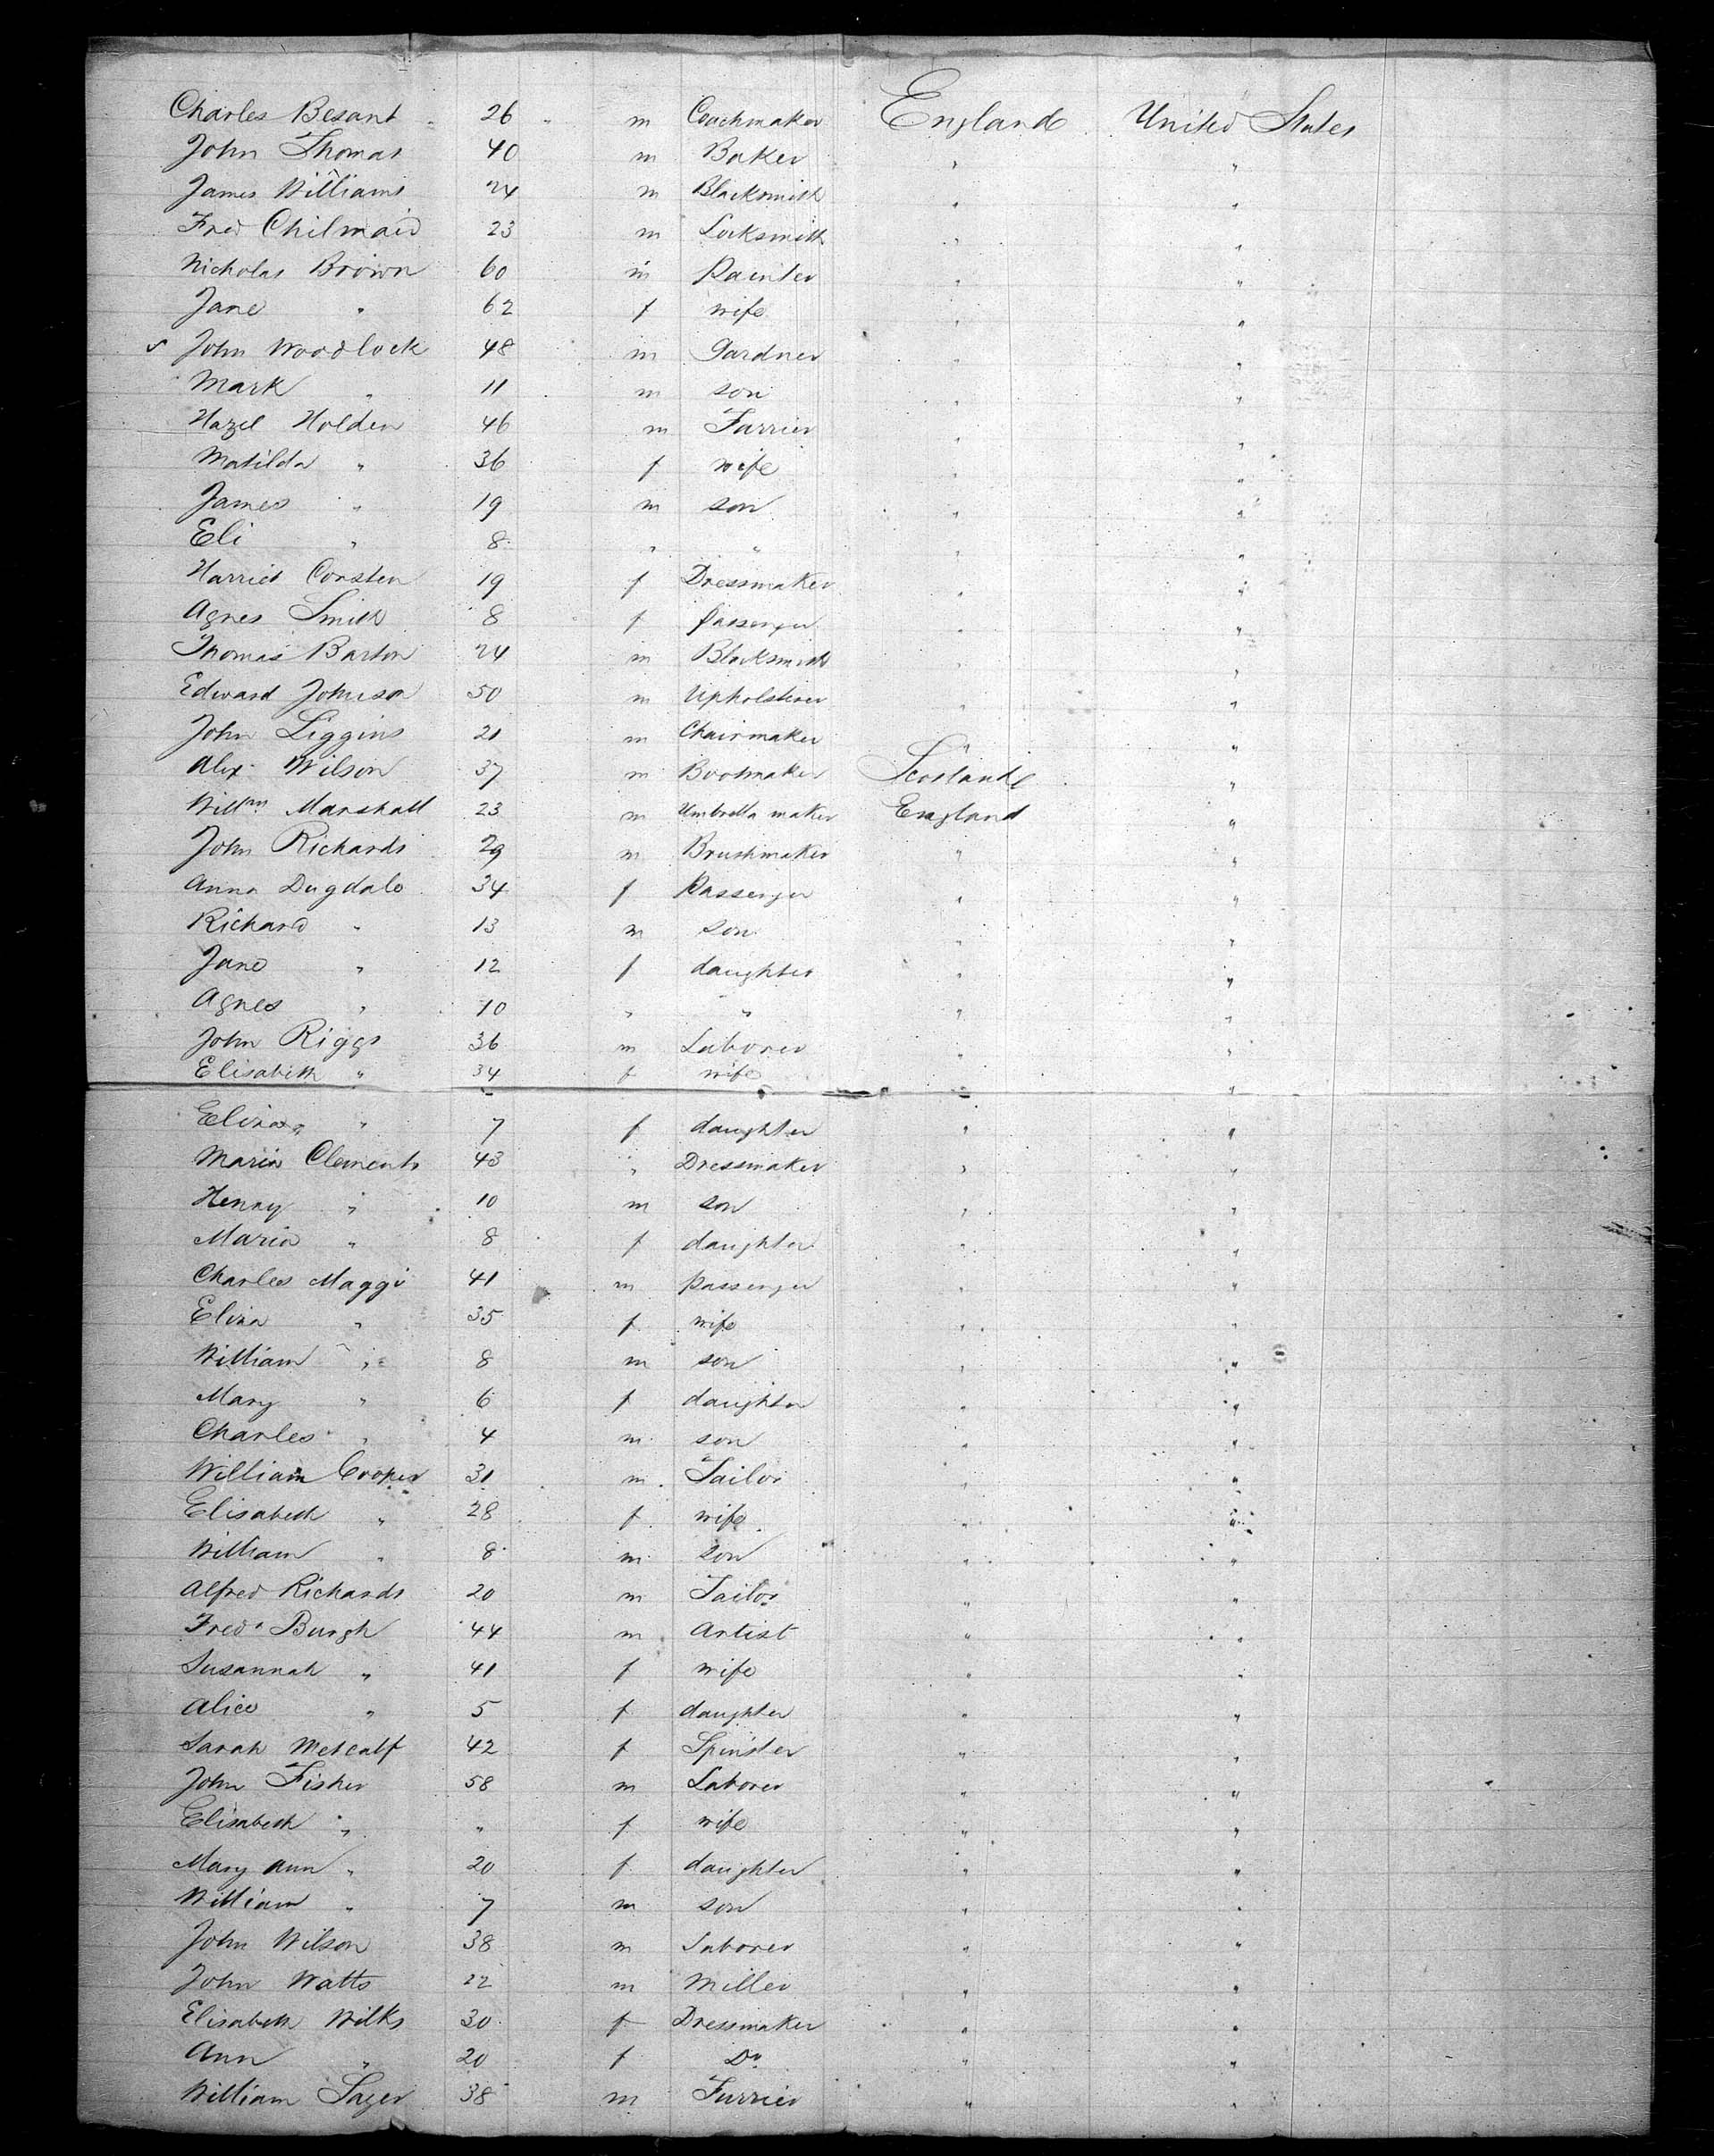 Charles Besant 26 m Coachmaker England United States
John Thomas 40 m Baker " "
James Williams 24 m Blacksmith " "
Fred Chilmaid 23 m Locksmith " "
Nicholas Brown 60 m Painter " "
Jane " 62 f wife " "
John Woodlock 48 m Gardner " "
Mark " 11 m son " "
Hazel Holden 46 m Farrier " "
Matilda " 36 f wife " "
James " 19 m son " "
Eli " 8 " " " "
Harriet Corsten 19 f Dressmaker " "
Agnes Smith 8 f passenger " "
Thomas Barton 24 m Blacksmith " "
Edward Johnson 50 m Upholsterer " "
John Liggins 21 m Chairmaker " "
Alex Wilson 37 m Bootmaker Scotland "
Willm Marshall 23 m Umbrella maker England "
John Richards 29 m Brushmaker " "
Anna Dugdale 34 f Passenger " "
Richard " 13 m son " "
Jane " 12 f daughter " "
Agnes " 10 " " " "
John Riggs 36 m Laborer " "
Elisabeth " 34 f wife " "
Eliza " 7 f daughter " "
Maria Clements 43 " Dressmaker " "
Henry " 10 m son " "
Maria " 8 f daughter " "
Charles Maggi 41 m passenger " "
Eliza " 35 f wife " "
William " 8 m son " "
Mary " 6 f daughter " "
Charles " 4 m son " "
William Cooper 31 m Tailor " "
Elisabeth " 28 f wife " "
William " 8 m son " "
Alfred Richards 20 m Tailor " "
Fred. Burgh 44 m Artist " "
Susannah " 41 f wife " "
Alice " 5 f daughter " "
Sarah Metcalf 42 f Spinster " "
John Fisher 58 m Laborer " "
Elisabeth " " f wife " "
Mary Ann " 20 f daughter " "
William " 7 m son " "
John Wilson 38 m Laborer " "
John Watts 22 m Miller " "
Elisabeth Wilks 30 f Dressmaker " "
Ann " 20 f Do " "
William Sager 38 m Furrier " "